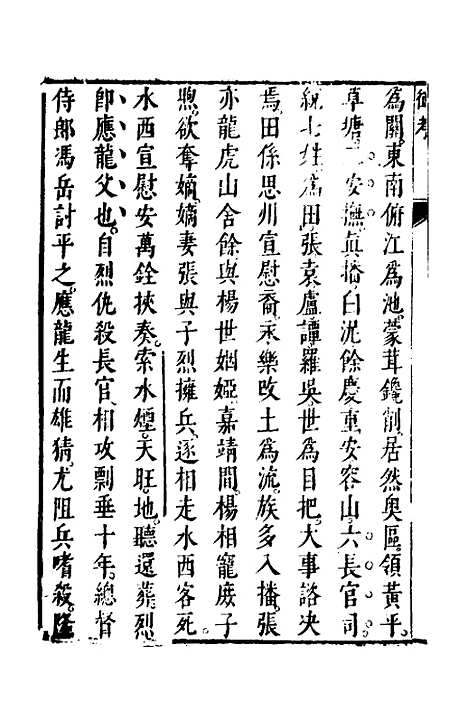 為關東南俯江為池蒙茸鑱削居然奥區領黄平
草塘二安撫真播白泥餘慶重安容山六長官司
統七姓為田張袁盧譚羅吳世為目把大事諮决
焉田係思州宣慰裔永樂改土為流族多入播張
亦龍虎山舍餘與楊世姻婭嘉靖間楊相寵庶子
煦欲奪嫡嫡妻張與子烈擁兵逐相走水西客死
水西宣慰安萬銓挾奏索水煙天旺地聽還葬烈
卽應龍父也自烈仇殺長官相攻剽垂十年總督
侍郎馮岳討平之應龍生而雄猜尤阻兵嗜殺隆